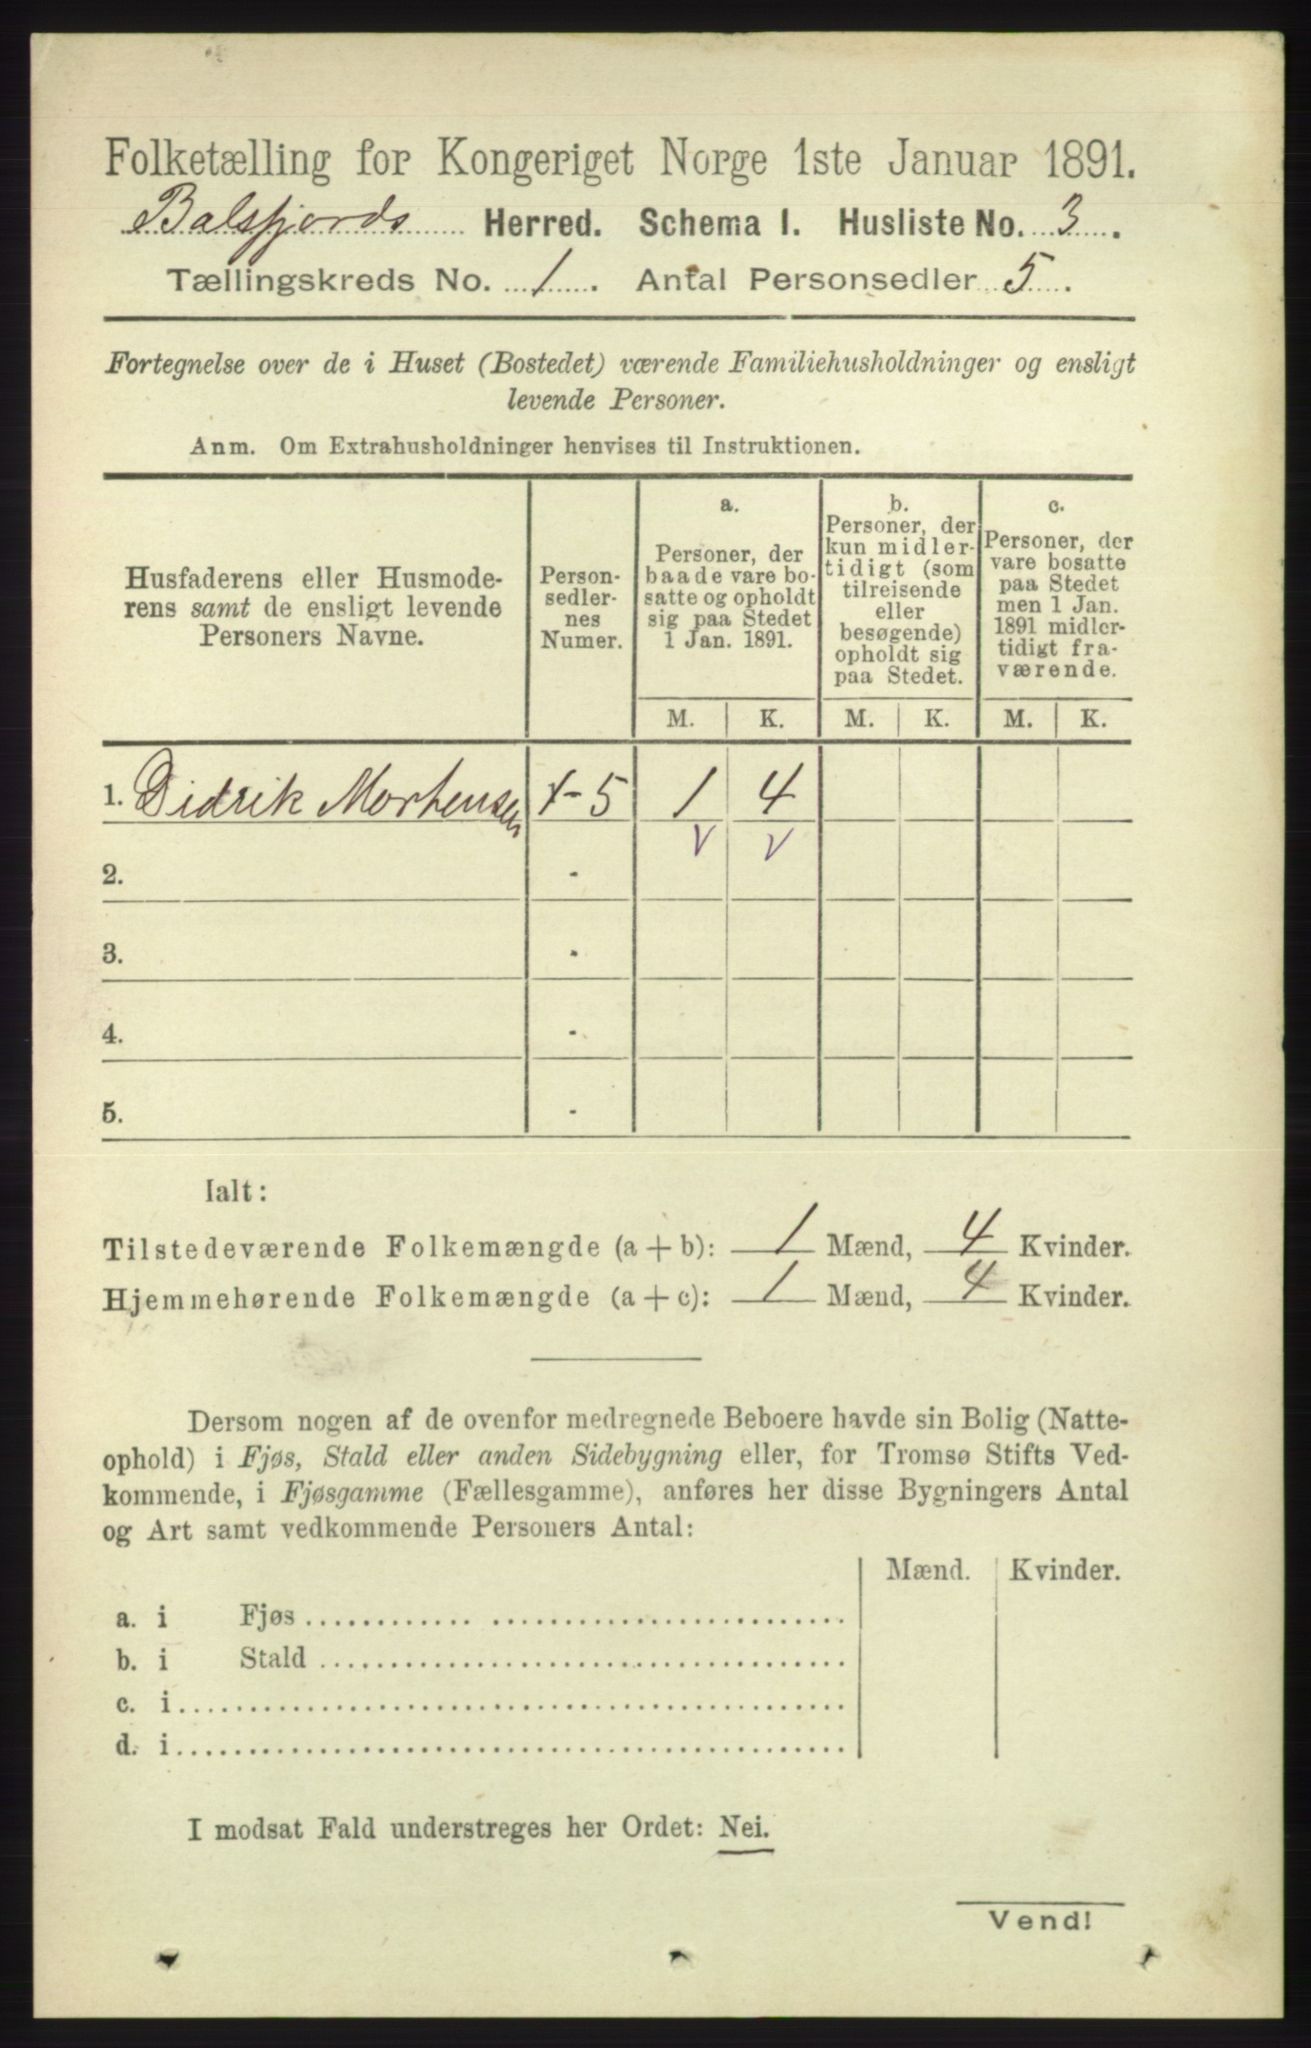 Folketælling for Kongeriget Norge 1ste Januar 1891.
Balsfjords Herred. Schema I. Husliste No. 3.
Tællingskreds No. 1. Antal Personsedler 5.
Fortegnelse over de i Huset (Bostedet) værende Familiehusholdninger og ensligt
levende Personer.
Anm. Om Extrahusholdninger henvises til Instruktionen.
Husfaderens eller Husmode-
rens samt de ensligt levende
Personers Navne.
Person-
sedler-
nes
Numer.
a.
Personer, der
baade vare bo-
satte og opholdt
sig paa Stedet
1 Jan. 1891.
b.
Personer, der
kun midler-
tidigt (som
tilreisende
eller
besøgende)
opholdt sig
paa Stedet.
c.
Personer, der
vare bosatte
paa Stedet
men 1 Jan.
1891 midler-
tidigt fra-
værende.
M. K. M. K. M. K.
1. Didrik Mortensen 1-5 1 4
v v
2. -
3. -
4. -
5. -
Ialt:
Tilstedeværende Folkemængde (a + b): 1 Mænd, 4 Kvinder.
Hjemmehørende Folkemængde (a + c): 1 Mænd, 4 Kvinder.
Dersom nogen af de ovenfor medregnede Beboere havde sin Bolig (Natte-
ophold) i Fjøs, Stald eller anden Sidebygning eller, for Tromsø Stifts Ved-
kommende, i Fjøsgamme (Fællesgamme), anføres her disse Bygningers Antal
og Art samt vedkommende Personers Antal:
Mænd. Kvinder.
a. i Fjøs
b. i Stald
c. i
d. i
I modsat Fald understreges her Ordet: Nei.
Vend!